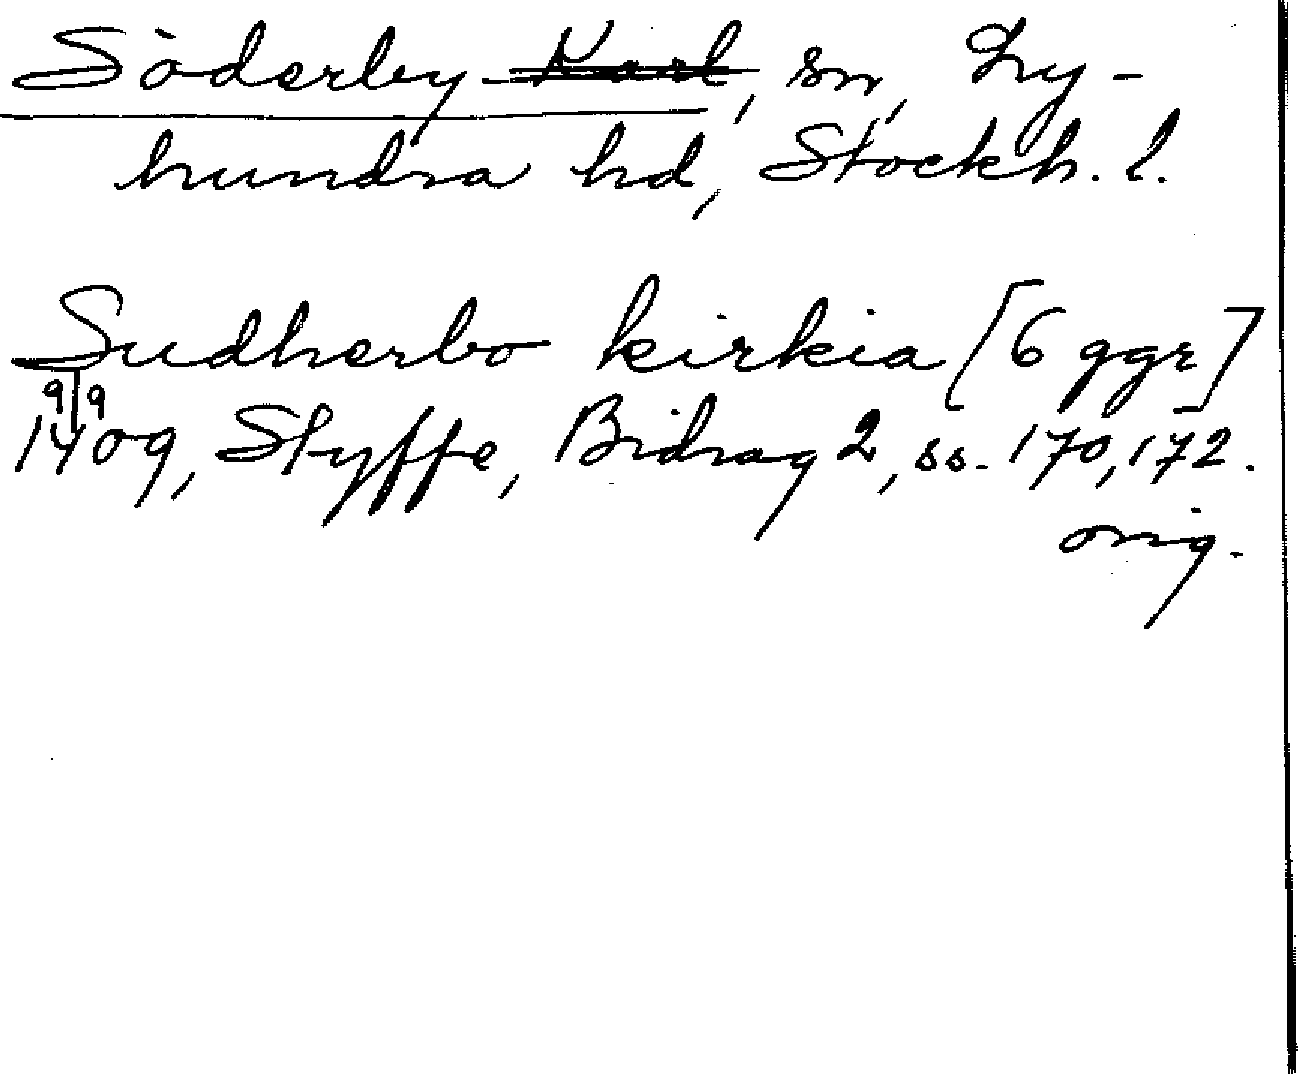 Söderby-Karl, sn, Ly-
hundra hd, Stockh. l.
Sudherbo kirkia [6 ggr]
9/9
1409, Styffe, Bidrag 2, ss. 170, 172.
orig.